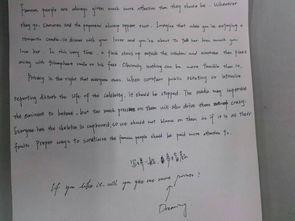 Famous people are always given much more attention than they should be. Wherever
they go, Cameras and the paparazzi always appear
Imagine that while you're enjoying a
romantic candle-lit dinner with your lover and you're about to tell her how much you
love her. In this very time, a flash shoots up outside the window and
away with triumphant smile on his face. Obviously nothing can be more terrible than
Privacy is the right that everyone owns. When constant public
or intensive
reporting disturb the life of the celebrity, it should be stopped. The media may supervise
the eminent to behave, but too much pressure on them will also drive them crazy.
Everyone has the skeleton in cupboard, so we should not blame on them as if it is all their
faults. Proper ways to scrutinize the famous people should be paid more attention to.
If you like it, will you give me more
Dreaming